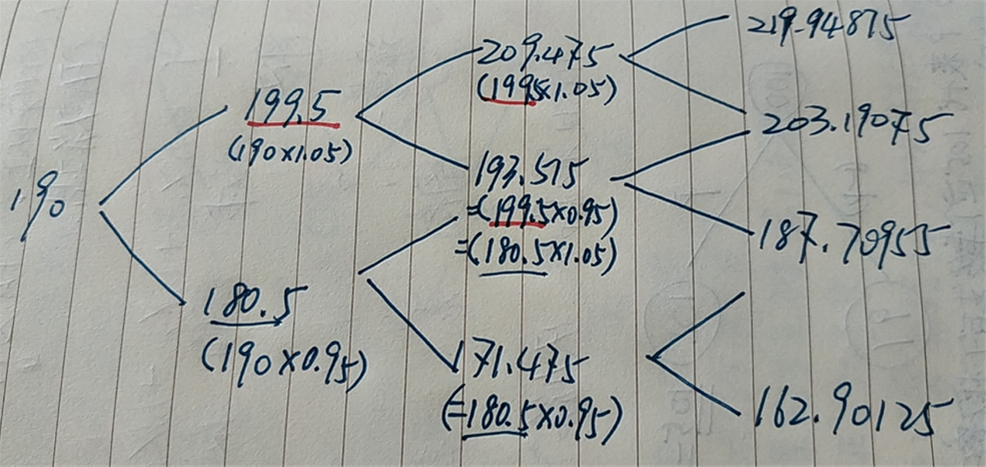 190
199.5
(190×1.05)
180.5
(190×0.95)
209.475
(199.5×1.05)
193.515
=(199.5×0.95)
=(180.5×1.05)
171.475
(=180.5×0.95)
219.94875
203.19075
187.70955
162.90125